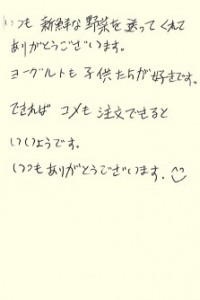 いつも 新鮮な 野菜を 送ってくれて
ありがとうございます。
ヨーグルトも 子供たちが好きです。
できれば コメも 注文できると
いいようです。
いつもありがとうございます。